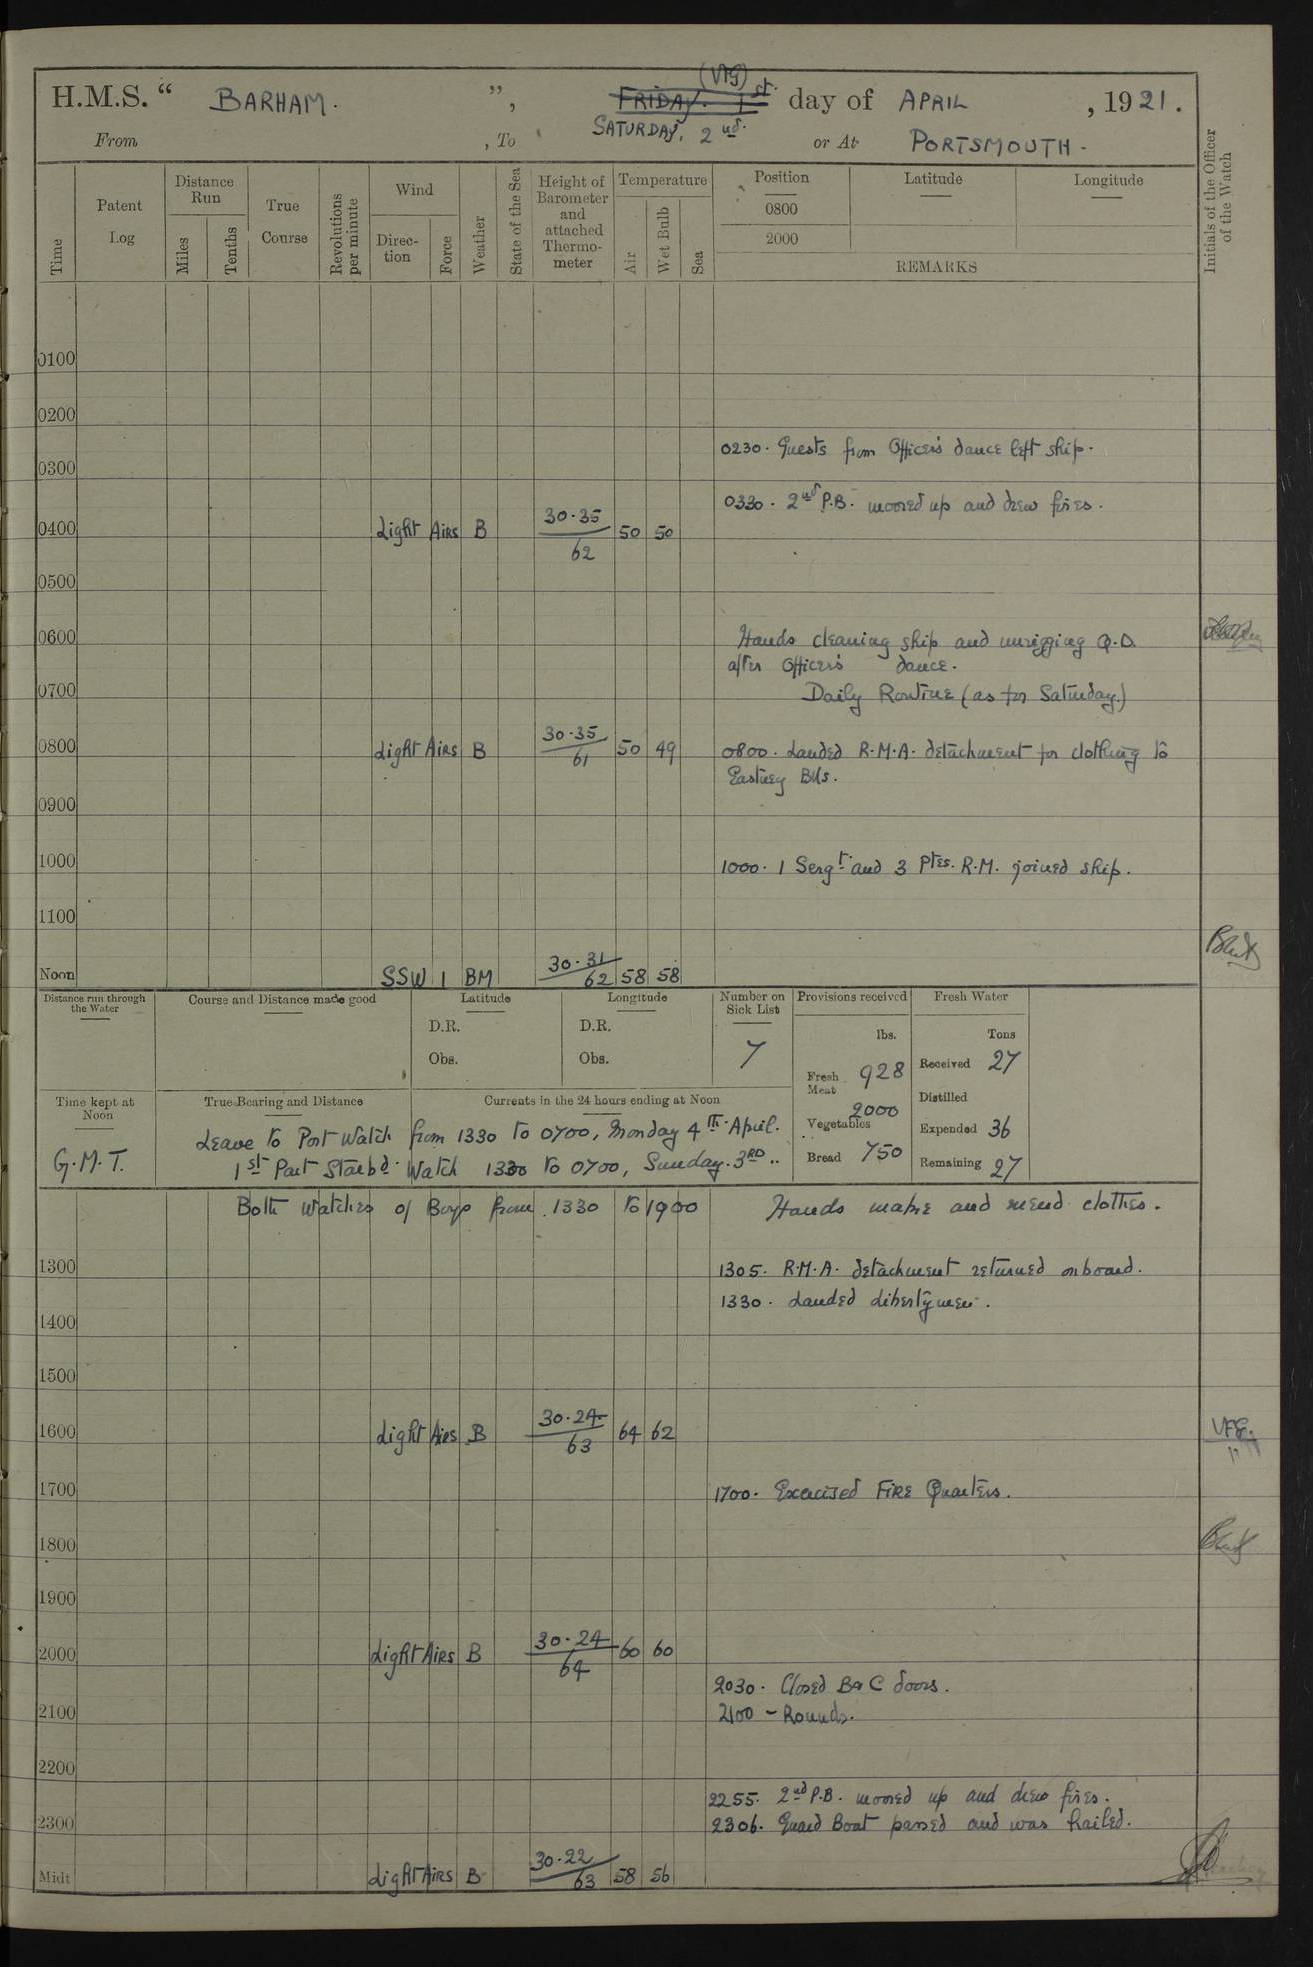 H.M.S. “ BARHAM. ”, (VFG) FRIDAY. 1st. day of APRIL, 1921.
SATURDAY, 2nd.
From , To or At PORTSMOUTH.
Time
Patent Log
Distance Run
Miles
Tenths
True Course
Revolutions per minute
Wind
Direc-tion
Force
Weather
State of the Sea
Height of Barometer and attached Thermo-meter
Temperature
Air
Wet Bulb
Sea
Position Latitude Longitude
0800
2000
REMARKS
Initials of the Officer of the Watch
0100
0200
0230. Guests from Officer's dance left ship.
0300
0330. 2nd P.B. moored up and drew fires.
0400 Light Airs B 30.35 50 50
62
0500
0600 Hands cleaning ship and unrigging Q.D.
after Officer's dance.
0700 Daily Routine (as for Saturday.)
0800 Light Airs B 30.35 50 49 0800. Landed R.M.A. detachment for clothing to
61 Eastney Bks.
0900
1000 1000. 1 Sergt. and 3 Ptes. R.M. joined ship.
1100
Noon SSW 1 BM 30.31 58 58
62
Distance run through the Water
Course and Distance made good
Latitude
D.R.
Obs.
Longitude
D.R.
Obs.
Number on Sick List
7
Provisions received
lbs.
Fresh Meat 928
Vegetables 2000
Bread 750
Fresh Water
Tons
Received 27
Distilled
Expended 36
Remaining 27
Time kept at Noon
G.M.T.
True Bearing and Distance
Currents in the 24 hours ending at Noon
Leave to Port Watch from 1330 to 0700, Monday 4th. April.
1st Part Starbd. Watch 1330 to 0700, Sunday. 3RD ..
Both Watches of Boys from 1330 to 1900 Hands make and mend clothes.
1300 1305. R.M.A. detachment returned onboard.
1330. Landed libertymen.
1400
1500
1600 Light Airs B 30.24 64 62 VFG.
63
1700 1700. Exercised FIRE Quarters.
1800
1900
2000 Light Airs B 30.24 60 60
64
2030. Closed B & C doors.
2100 2100 - Rounds.
2200
2255. 2nd P.B. moored up and drew fires.
2300 2306. Guard Boat passed and was hailed.
Midt Light Airs B 30.22 58 56
63